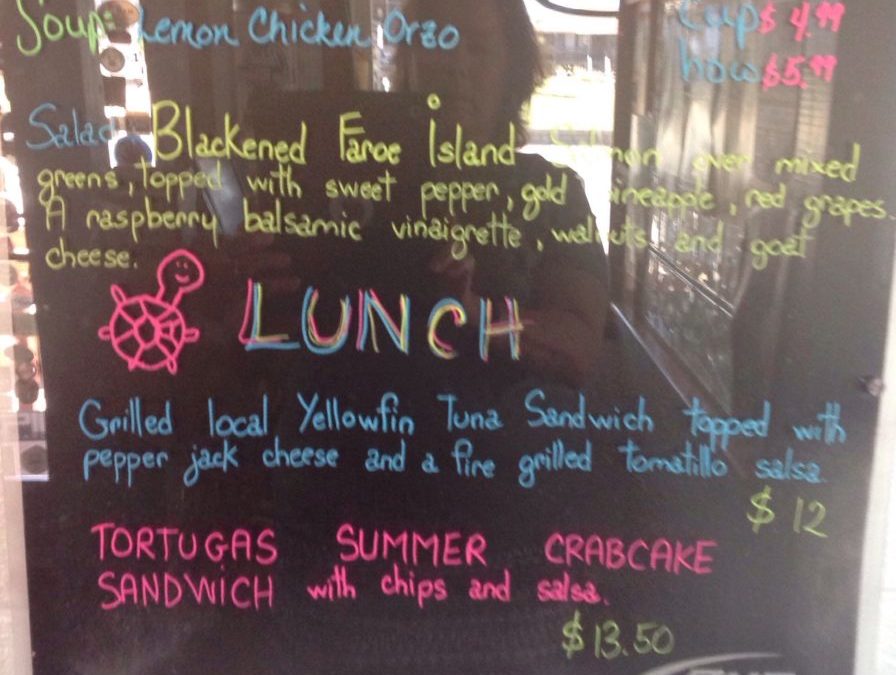 Soup: Lemon Chicken Orzo
Cup $4.99
bowl $5.99
Salad: Blackened Faroe Island Salmon over mixed
greens, topped with sweet pepper, gold pineapple, red grapes
A raspberry balsamic vinaigrette, walnuts and goat
cheese.
LUNCH
Grilled local Yellowfin Tuna Sandwich topped with
pepper jack cheese and a fire grilled tomatillo salsa.
$12
TORTUGAS SUMMER CRABCAKE
SANDWICH with chips and salsa.
$13.50